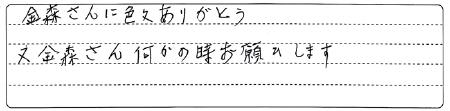 金森さんに色々ありがとう
又金森さん何かの時お願いします